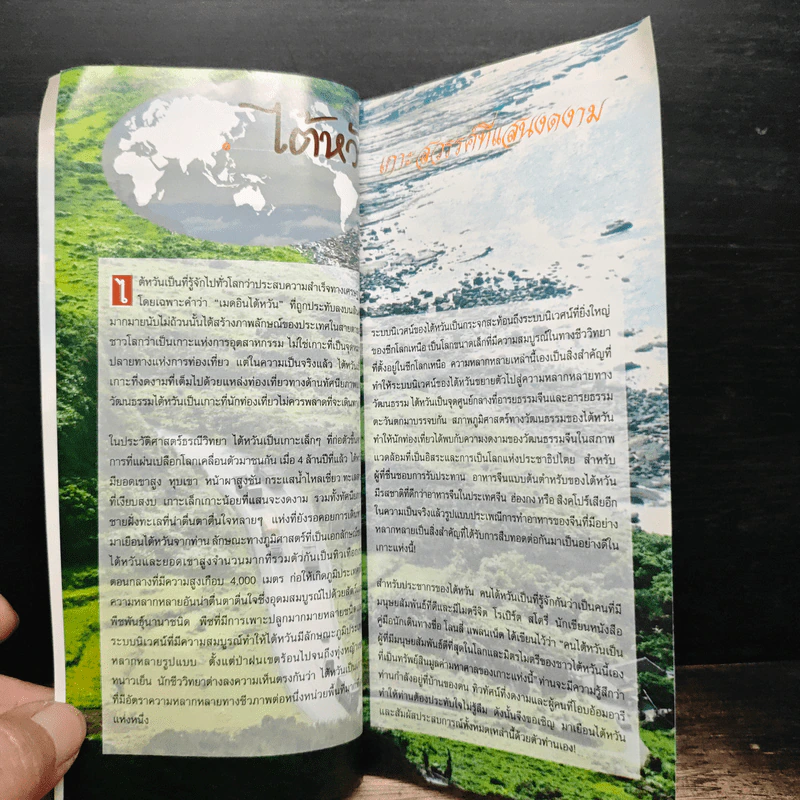 ไต้หวั
เกาะสวรรค์ที่แสนงดงาม
ไต้หวันเป็นที่รู้จักไปทั่วโลกว่าประสบความสำเร็จทางเศรษ
โดยเฉพาะคำว่า "เมดอินไต้หวัน" ที่ถูกประทับลงบน
มากมายนับไม่ถ้วนนั้นได้สร้างภาพลักษณ์ของประเทศในสายตา
ชาวโลกว่าเป็นเกาะแห่งการอุตสาหกรรม ไม่ใช่เกาะที่เป็นจุด
ปลายทางแห่งการท่องเที่ยว แต่ในความเป็นจริงแล้ว ไต้หวัน
เกาะที่งดงามที่เต็มไปด้วยแหล่งท่องเที่ยวทางด้านทัศนียภาพ
วัฒนธรรมไต้หวันเป็นเกาะที่นักท่องเที่ยวไม่ควรพลาดที่จะเดิน
ในประวัติศาสตร์ธรณีวิทยา ไต้หวันเป็นเกาะเล็กๆ ที่ก่อตัวขึ้น
การที่แผ่นเปลือกโลกเคลื่อนตัวมาชนกัน เมื่อ 4 ล้านปีที่แล้ว ไต้
มียอดเขาสูง หุบเขา หน้าผาสูงชัน กระแสน้ำไหลเชี่ยว ทะเล
ที่เงียบสงบ เกาะเล็กเกาะน้อยที่แสนจะงดงาม รวมทั้งทัศนีย
ชายฝั่งทะเลที่น่าตื่นตาตื่นใจหลายๆ แห่งที่ยังรอคอยการเดิน
มาเยือนไต้หวันจากท่าน ลักษณะทางภูมิศาสตร์ที่เป็นเอกลักษณ์
ไต้หวันและยอดเขาสูงจำนวนมากที่รวมตัวกันเป็นทิวเทือก
ตอนกลางที่มีความสูงเกือบ 4,000 เมตร ก่อให้เกิดภูมิประเทศ
ความหลากหลายอันน่าตื่นตาตื่นใจซึ่งอุดมสมบูรณ์ไปด้วยสัต
พืชพันธุ์นานาชนิด พืชที่มีการเพาะปลูกมากมายหลายชนิด
ระบบนิเวศน์ที่มีความสมบูรณ์ทำให้ไต้หวันมีลักษณะภูมิประ
หลากหลายรูปแบบ ตั้งแต่ป่าฝนเขตร้อนไปจนถึงทุ่งหญ้า
หนาวเย็น นักชีววิทยาต่างลงความเห็นตรงกันว่า ไต้หวันเป็น
ที่มีอัตราความหลากหลายทางชีวภาพต่อหนึ่งหน่วยพื้นที่มาก
แห่งหนึ่ง
ระบบนิเวศน์ของไต้หวันเป็นกระจกสะท้อนถึงระบบนิเวศน์ที่ยิ่งใหญ่
ของซีกโลกเหนือ เป็นโลกขนาดเล็กที่มีความสมบูรณ์ในทางชีววิทยา
ที่ตั้งอยู่ในซีกโลกเหนือ ความหลากหลายเหล่านี้เองเป็นสิ่งสำคัญที่
ทำให้ระบบนิเวศน์ของไต้หวันขยายตัวไปสู่ความหลากหลายทาง
วัฒนธรรม ไต้หวันเป็นจุดศูนย์กลางที่อารยธรรมจีนและอารยธรรม
ตะวันตกมาบรรจบกัน สภาพภูมิศาสตร์ทางวัฒนธรรมของไต้หวัน
ทำให้นักท่องเที่ยวได้พบกับความงดงามของวัฒนธรรมจีนในสภาพ
แวดล้อมที่เป็นอิสระและการเป็นโลกแห่งประชาธิปไตย สำหรับ
ผู้ที่ชื่นชอบการรับประทาน อาหารจีนแบบต้นตำหรับของไต้หวัน
มีรสชาติที่ดีกว่าอาหารจีนในประเทศจีน ฮ่องกง หรือ สิงคโปร์เสียอีก
ในความเป็นจริงแล้วรูปแบบประเพณีการทำอาหารของจีนที่มีอย่าง
หลากหลายเป็นสิ่งสำคัญที่ได้รับการสืบทอดต่อกันมาเป็นอย่างดีใน
เกาะแห่งนี้!
สำหรับประชากรของไต้หวัน คนไต้หวันเป็นที่รู้จักกันว่าเป็นคนที่มี
มนุษยสัมพันธ์ที่ดีและมีไมตรีจิต โรเบิร์ต สโตรี่ นักเขียนหนังสือ
คู่มือนักเดินทางชื่อ โลนลี่ แพลนเน็ต ได้เขียนไว้ว่า "คนไต้หวันเป็น
ผู้ที่มีมนุษยสัมพันธ์ดีที่สุดในโลกและมิตรไมตรีของชาวไต้หวันนี้เอง
ที่เป็นทรัพย์สินมูลค่ามหาศาลของเกาะแห่งนี้" ท่านจะมีความรู้สึกว่า
ท่านกำลังอยู่ที่บ้านของตน ทิวทัศน์ที่งดงามและผู้คนที่โอบอ้อมอารี
ทำให้ท่านต้องประทับใจไม่รู้ลืม ดังนั้นจึงขอเชิญ มาเยือนไต้หวัน
และสัมผัสประสบการณ์ทั้งหมดเหล่านี้ด้วยตัวท่านเอง!